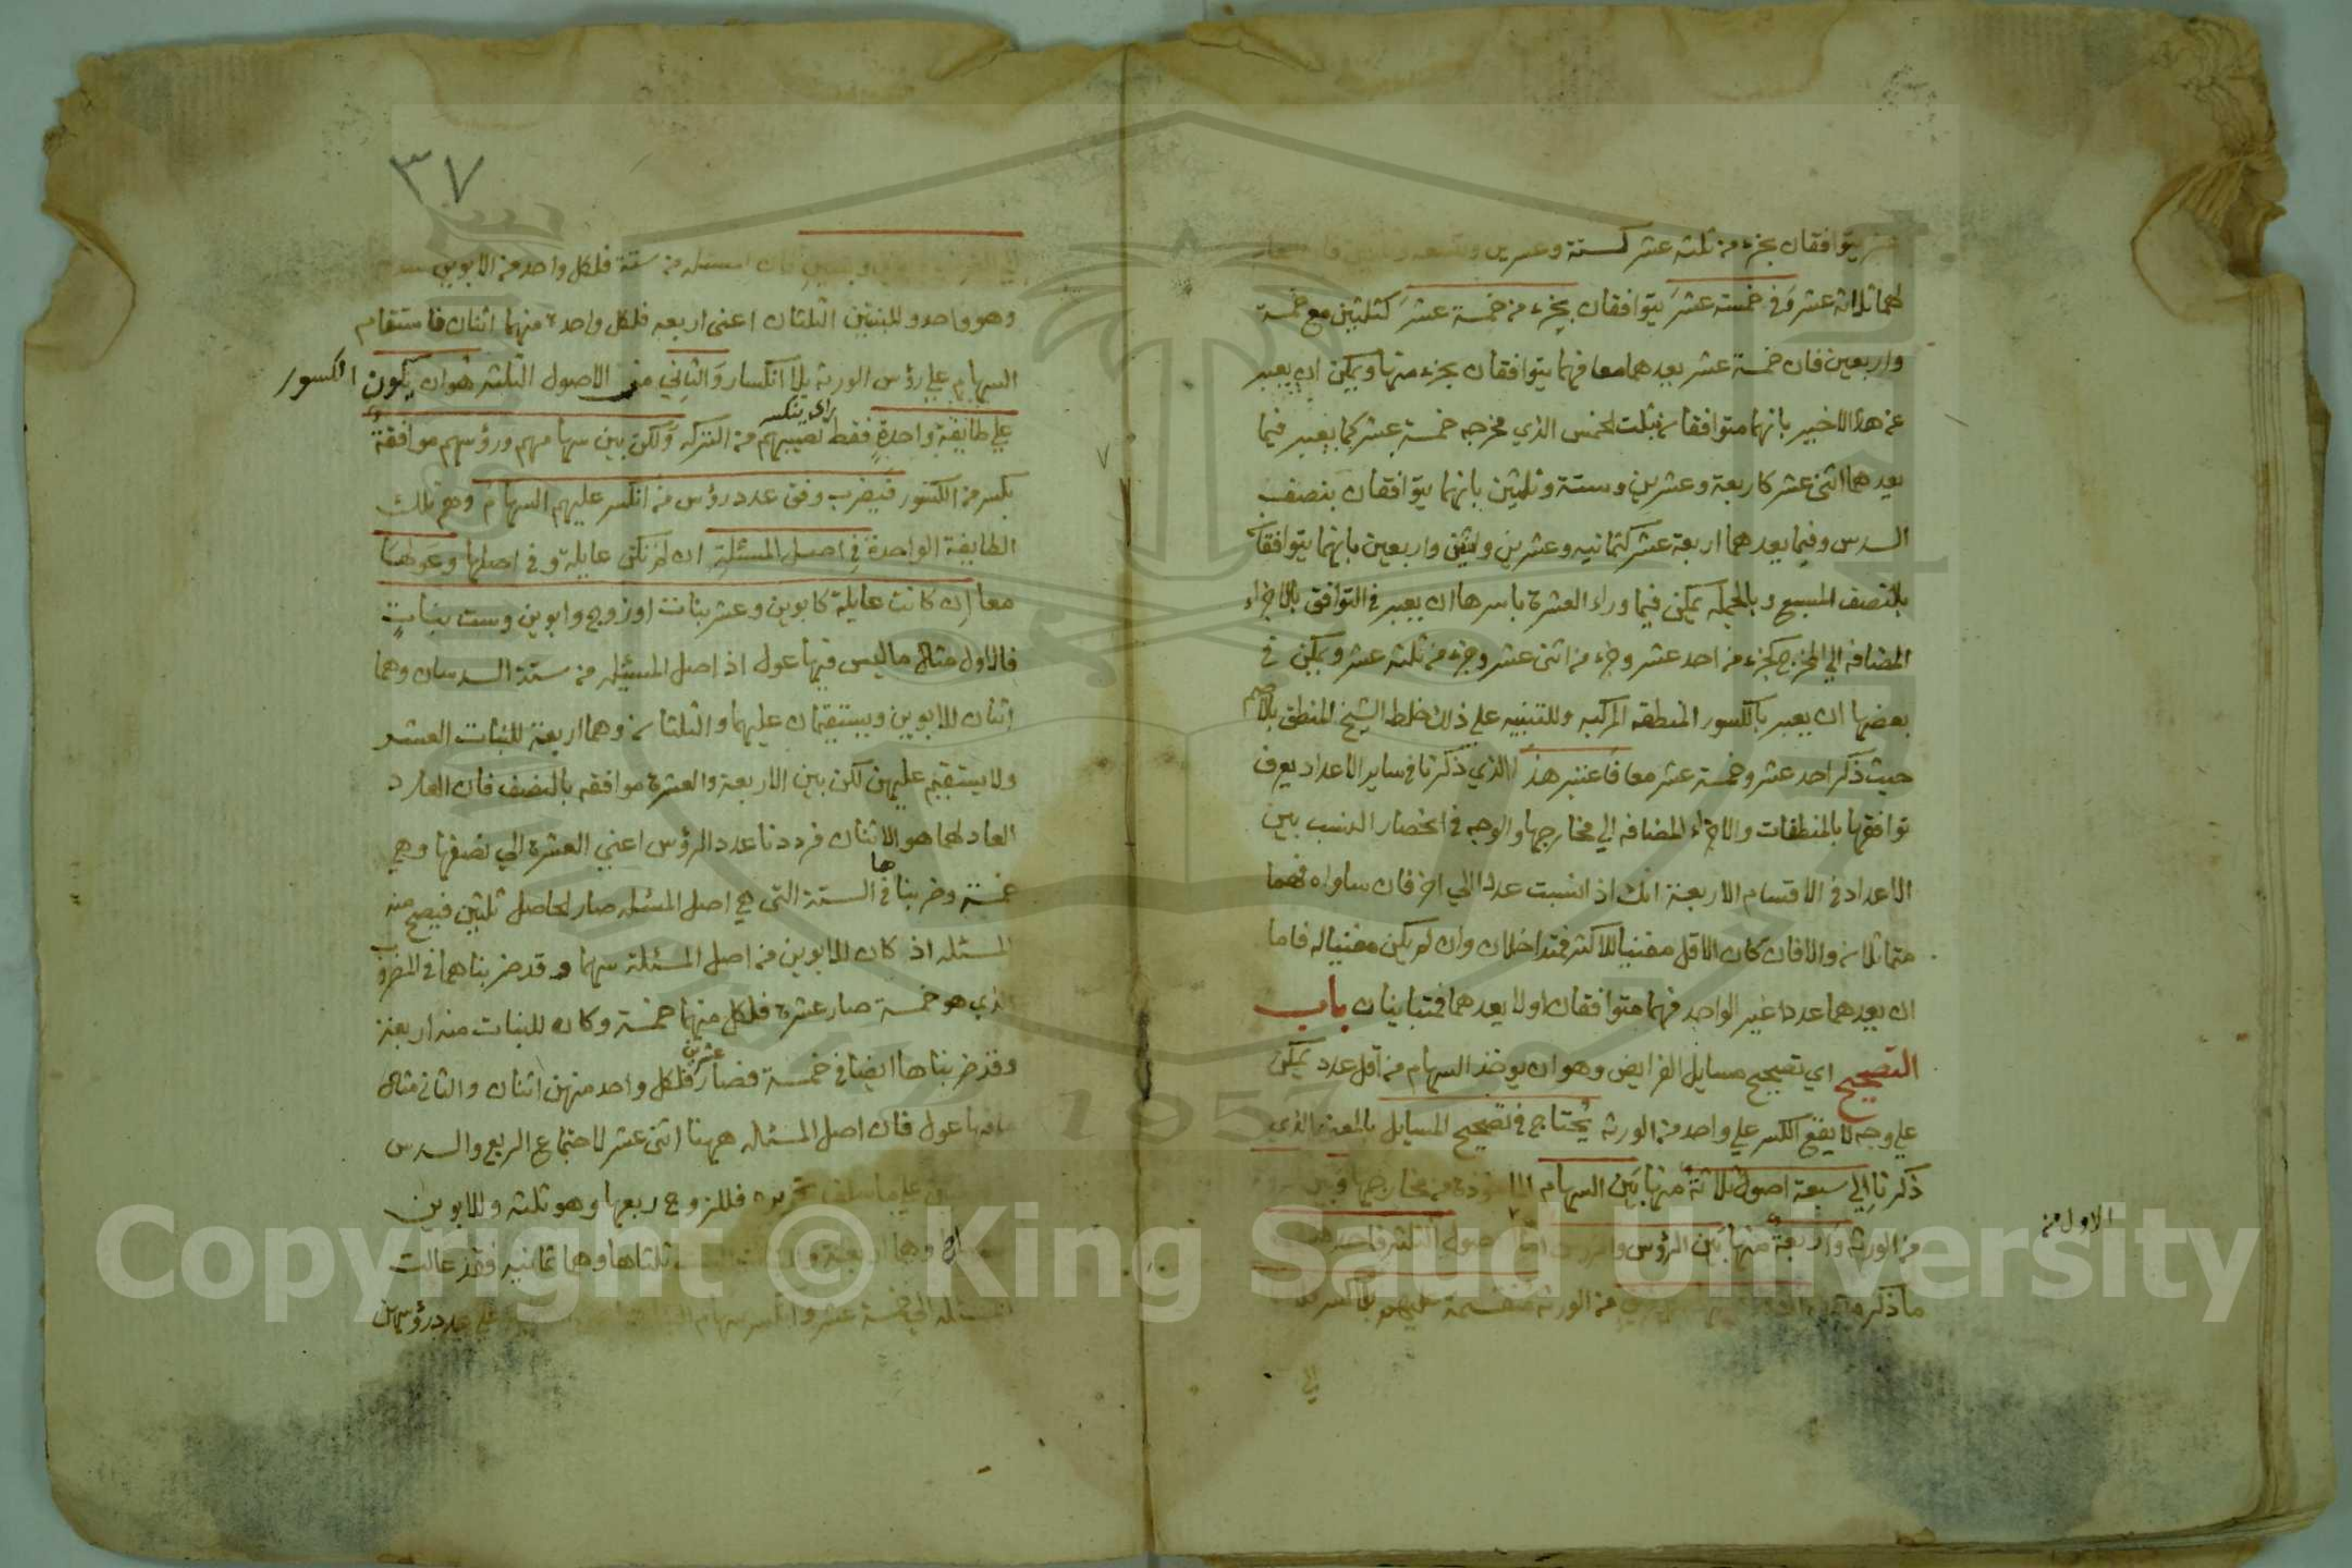 يتوافقان بجزء من ثلثة عشر كستة وعشرين
لهما ثلاثة عشر وفي خمسة عشر يتوافقان بجزء من خمسة عشر كثلثين مع خمسة
واربعين فان خمسة عشر يعدهما معا فهما يتوافقان بجزء منها ويمكن ان يعبر
عن هذا الاخير بانهما متوافقان بثلث الخمس الذي مخرجه خمسة عشر كما يعبر فيما
يعدهما اثنى عشر كاربعة وعشرين وستة وثلثين بانهما يتوافقان بنصف
السدس وفيما يعدهما اربعة عشر كثمانيه وعشرين واثنين واربعين بانهما يتوافقان
بالنصف السبع وبالجمله يمكن فيما وراء العشرة باسرها ان يعبر في التوافق بالاجزاء
المضافه الي المخرج كجزء من احد عشر وجزء من اثنى عشر وجزء من ثلثه عشر ويمكن في
بعضها ان يعبر بالكسور المنطقه المركبه وللتنبيه على ذلك خلط الشيخ المنطق بالاصم
حيث ذكر احد عشر وخمسة عشر معا فاعتبر هذا الذي ذكرنا في ساير الاعداد يعرف
توافقها بالمنطقات والاجزاء المضافه الي مخارجها والوجه في انحصار النسب بين
الاعداد في الاقسام الاربعة انك اذا نسبت عددا الي اخر فان ساواه فهما
متماثلان والا فان كان الاقل مفنيا للاكثر فمتداخلان وان لم يكن مفنيا له فاما
ان يعدهما عددا غير الواحد فهما متوافقان او لا يعدهما فمتباينان باب
التصحيح اي تصحيح مسايل الفرايض وهو ان يوخذ السهام من اقل عدد يمكن
علي وجه لا يقع الكسر علي واحد من الورثه يحتاج في تصحيح المسايل بالمعنى الذي
ذكرنا الي سبعة اصول ثلاثة منها بين السهام من مخارجها
من الورثه واربعة منها بين الرؤس
الاول من
ما ذكر من الورثه منقسمة عليهم بلا كسر
الي
٣٧
من ستة فلكل واحد من الابوين
وهو واحد وللبنتين الثلثان اعنى اربعه فلكل واحدة منهما اثنان فاستقام
السهام علي رؤس الورثه بلا انكسار والثاني من الاصول الثلثه هو ان يكون الكسور
علي طايفة واحدة فقط نصيبهم من التركه ولكن بين سهامهم ورؤسهم موافقة
اي ينكسر
بكسر من الكسور فيضرب وفق عدد رؤس من انكسر عليهم السهام وهم تلك
الطايفة الواحدة في اصل المسئلة ان لم تكن عايلة وفي اصلها وعولها
معا ان كانت عايلة كابوين وعشر بنات او زوج وابوين وست بنات
فالاول مثال ما ليس فيها عول اذ اصل المسئله من ستة السدسان وهما
اثنان للابوين ويستقيمان عليهما والثلثان وهما اربعة للبنات العشر
ولا يستقيم عليهن لكن بين الاربعة والعشرة موافقه بالنصف فان العدد
العاد لهما هو الاثنان فرددنا عدد الرؤس اعني العشرة الي نصفها وهي
خمسة وضربناها في الستة التي هي اصل المسئله صار الحاصل ثلثين فيصح منه
المسئله اذ كان للابوين من اصل المسئلة سهما وقد ضربناهما في المضروب
الذي هو خمسة صار عشرة فلكل منهما خمسة وكان للبنات منه اربعة
وقد ضربناها ايضا في خمسة فصار عشرين فلكل واحد منهن اثنان والثاني مثال
ما فيها عول فان اصل المسئله ههنا اثنى عشر لاجتماع الربع والسدس
فللزوج ربعها وهو ثلثه وللابوين
وهما اربعة ثلثاها وهما ثمانيه فقد عالت
المسئله الي خمسة عشر وانكسر سهام علي عدد رؤسهن
Copyright © King Saud University
1957